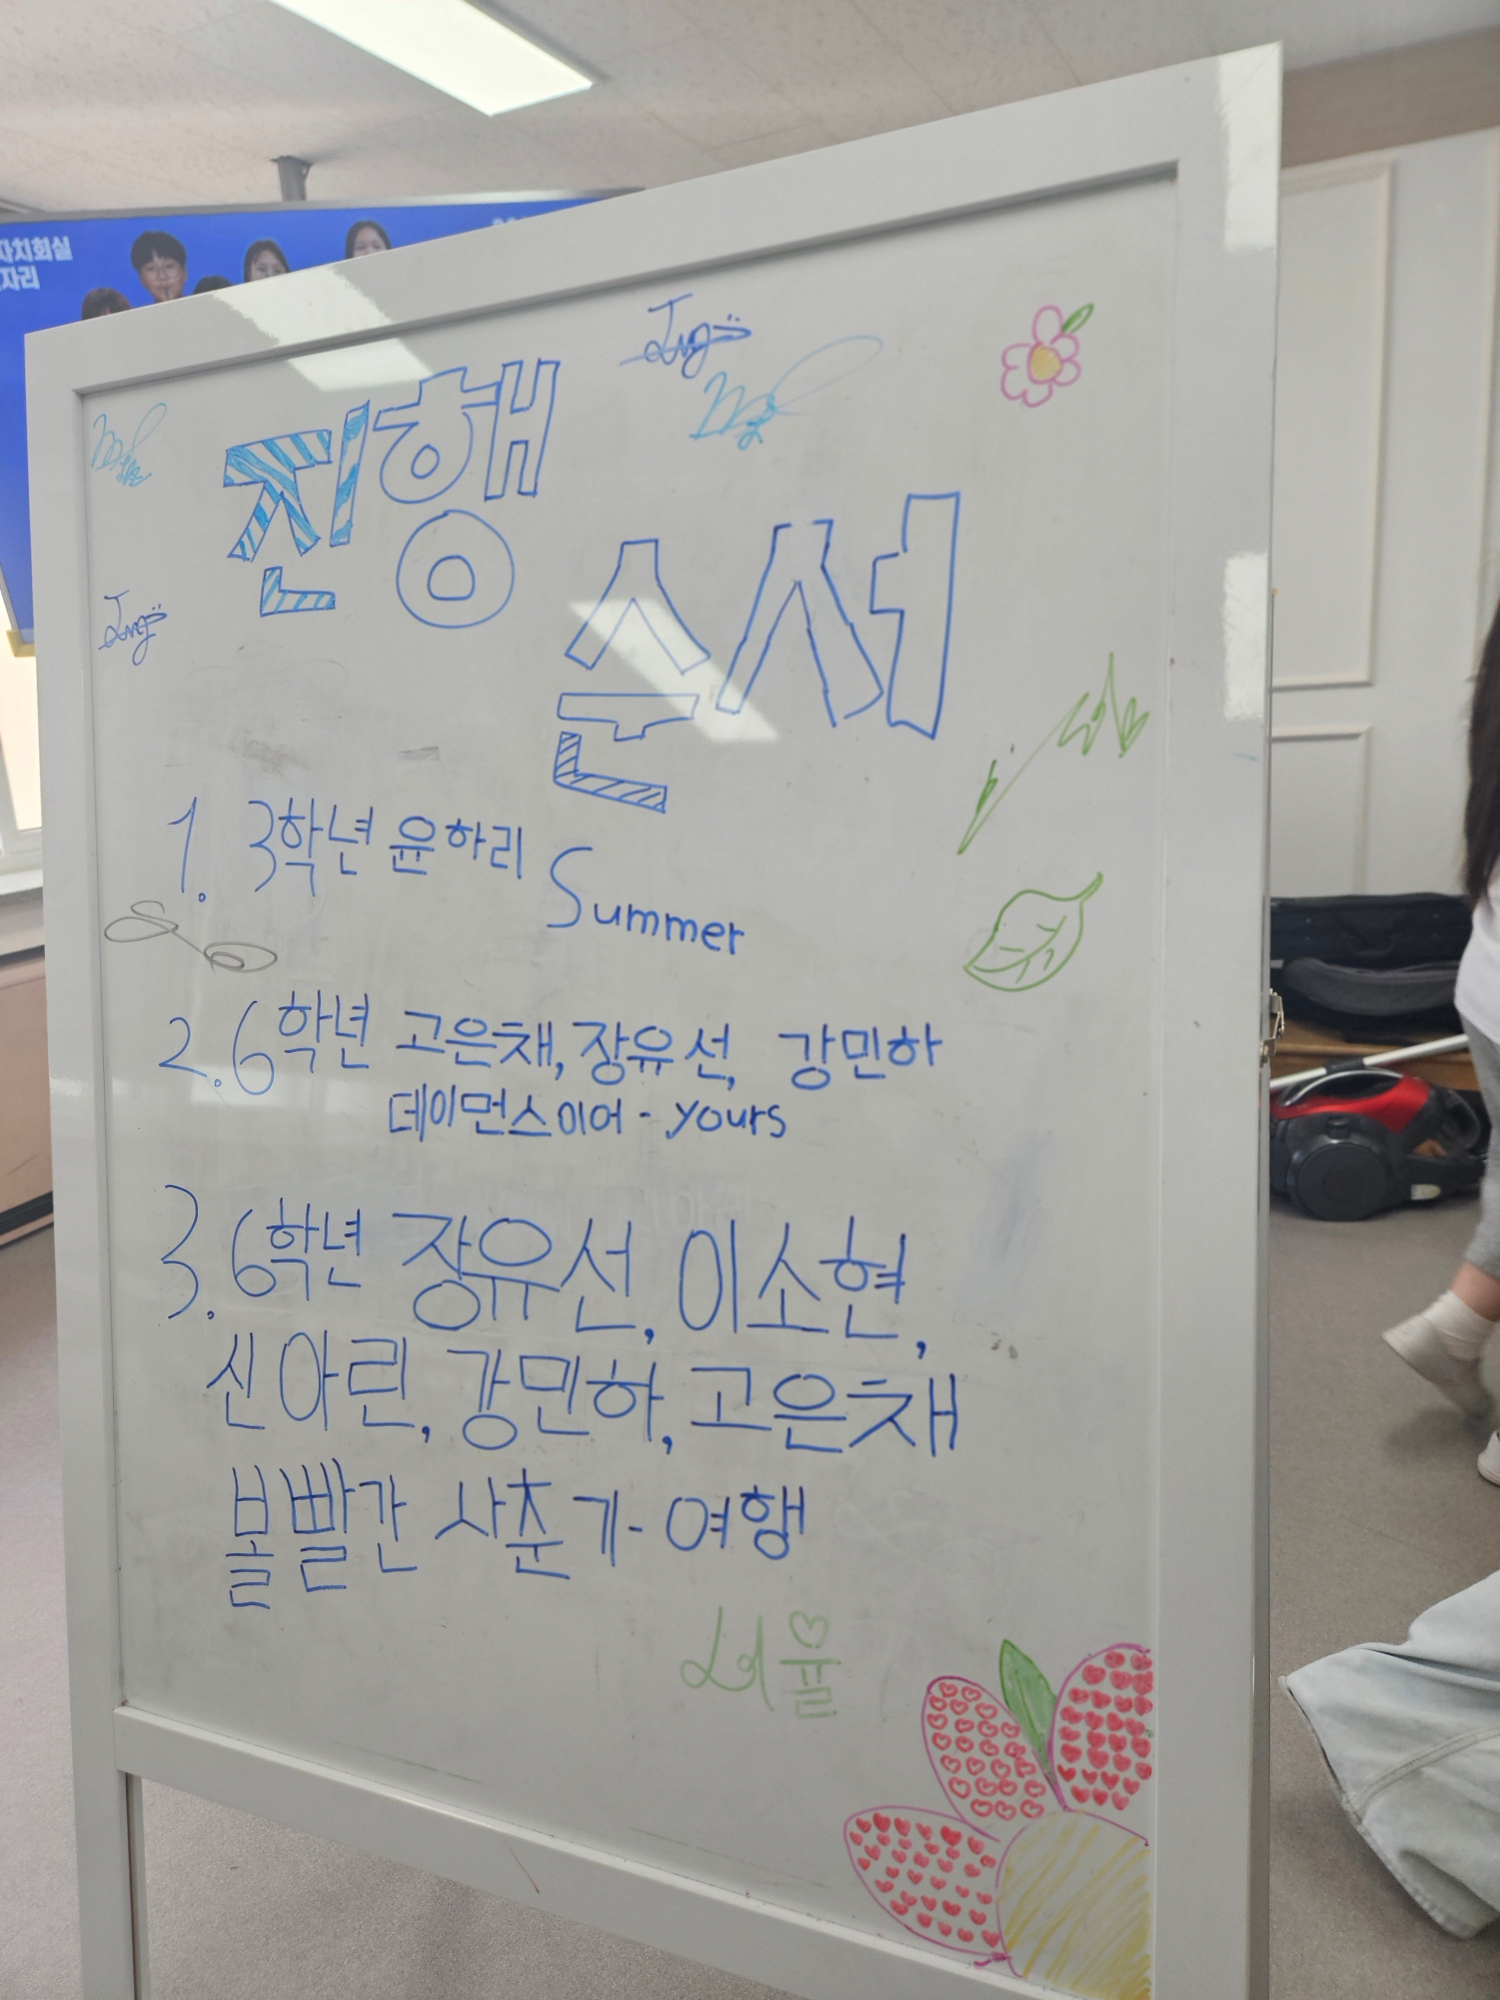 자치회실
자리
진행
순서
1. 3학년 윤하리
Summer
2. 6학년 고은채, 장유선, 강민하
데이먼스이어 - yours
3. 6학년 장유선, 이소현,
신아린, 강민하, 고은채
볼빨간 사춘기 - 여행
서율